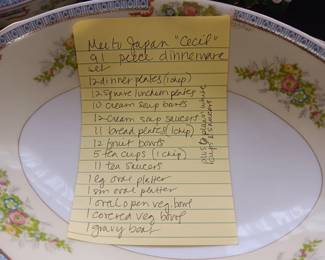 Meito Japan "Cecil"
91 piece dinnerware
set
12 dinner plates (1 chip)
12 square luncheon plates
10 cream soup bowls
12 cream soup saucers
11 bread plates (1 chip)
12 fruit bowls
5 tea cups (1 chip)
11 tea saucers
1 lg oval platter
1 sm oval platter
1 oval open veg. bowl
1 covered veg bowl
1 gravy boat
plus 6 plain white
cups & saucers